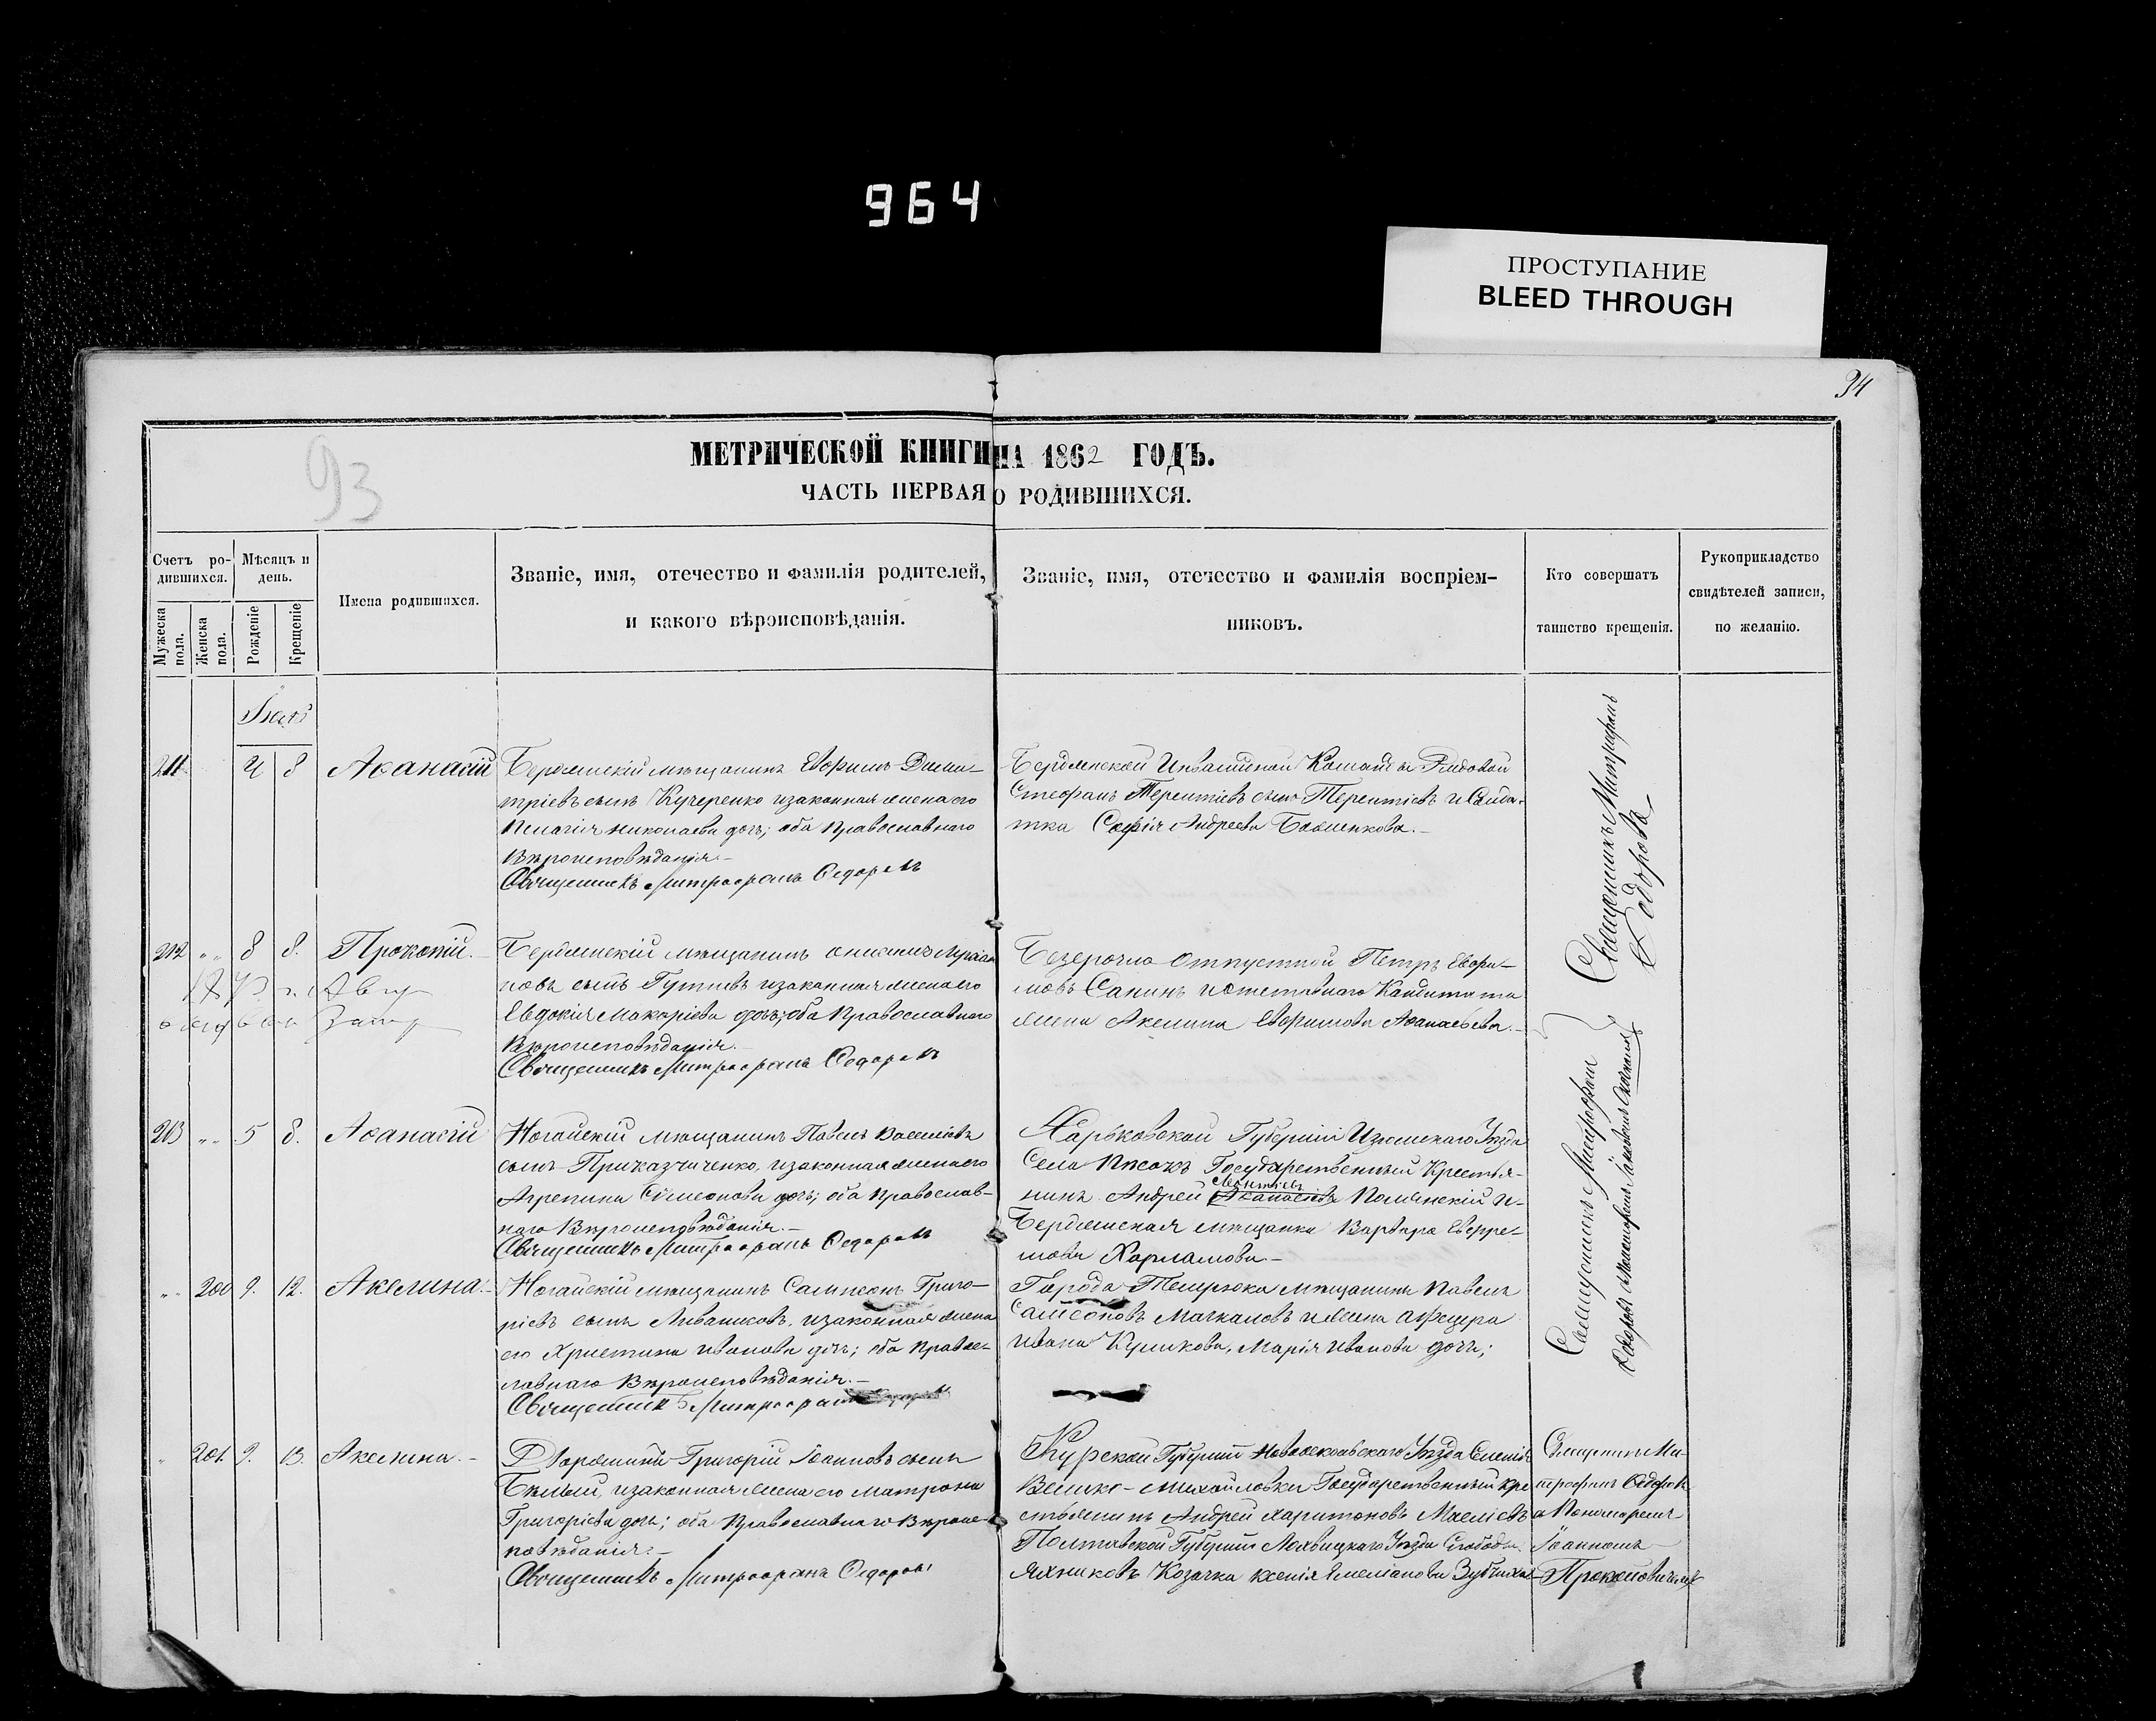 964
ПРОСТУПАНИЕ
BLEED THROUGH
34
93
МЕТРИЧЕСКОЙ КНИГИ НА 1862 ГОДЪ.
ЧАСТЬ ПЕРВАЯ О РОДИВШИХСЯ.
Счетъ ро-
дившихся.
Мужеска пола.
Женска пола.
Мѣсяцъ и
день.
Рожденіе
Крещеніе
Имена родившихся.
Званіе, имя, отечество и фамилія родителей,
и какого вѣроисповѣданія.
Званіе, имя, отечество и фамилія воспріем-
никовъ.
Кто совершатъ
таинство крещенія.
Рукоприкладство
свидѣтелей записи,
по желанію.
211 4 8 Аѳанасій
Бердянскій мѣщанинъ Евфимъ Дими-
тріевъ сынъ Кучеренко и законная жена его
Пелагія Николаева дочь; оба Православнаго
Вѣроисповѣданія.-
Священникъ Митрофанъ Ѳедоровъ
Бердянской Инвалидной Команды Рядовой
Стефанъ Терентіевъ сынъ Терентіевъ и Солда-
тка Софія Андреева
Священникъ Митрофанъ
Ѳедоровъ
212 " " 8 8. Прокопій.
Бердянскій мѣщанинъ
новъ сынъ и законная жена его
Евдокія Макаріева дочь; оба Православнаго
Вѣроисповѣданія.-
Священникъ Митрофанъ Ѳедоровъ
Безсрочно отпускной Петръ Евфи-
мовъ Санинъ и
жена Акилина Евфимова Аѳанасьева.-
213 " " 5 8. Аѳанасій
Ногайскій мѣщанинъ Павелъ Василіевъ
сынъ Приказчиченко, и законная жена его
Агрепина Симеонова дочь; оба Православ-
наго Вѣроисповѣданія.-
Священникъ Митрофанъ Ѳедоровъ
Харьковской Губерніи Изюмскаго Уѣзда
Села Песокъ Государственный Крестья-
нинъ Андрей Аѳанасіевъ и
Бердянская мѣщанка Варвара Евфре-
мова Харламова.-
Священникъ Митрофанъ
" " 200 9. 12. Акелина.-
Ногайскій мѣщанинъ Сампсонъ Григо-
ріевъ сынъ и законная жена
его Христина Иванова дочь; оба Правос-
лавнаго Вѣроисповѣданія.-
Священникъ Митрофанъ
Города Темрюка мѣщанинъ Павелъ
Самсоновъ и жена
Ивана Куликова, Марія Иванова дочь;
" 201. 9. 13. Акелина.-
Дворянинъ Григорій Іоанновъ сынъ
Бѣлый, и законная жена его Матрона
Григоріева дочь; оба Православнаго Вѣроис-
повѣданія.-
Священникъ Митрофанъ Ѳедоровъ
Курской Губерніи Новооскольскаго Уѣзда
Велико-Михайловки Государственный кре
стьянинъ Андрей Харитоновъ
Полтавской Губерніи Лохвицкаго Уѣзда Слободы
Яхниковъ Козачка Ксенія Емеліанова
Священникъ Ми-
трофанъ Ѳедоровъ
и Пономаремъ
Іоанномъ
Прокоповичемъ